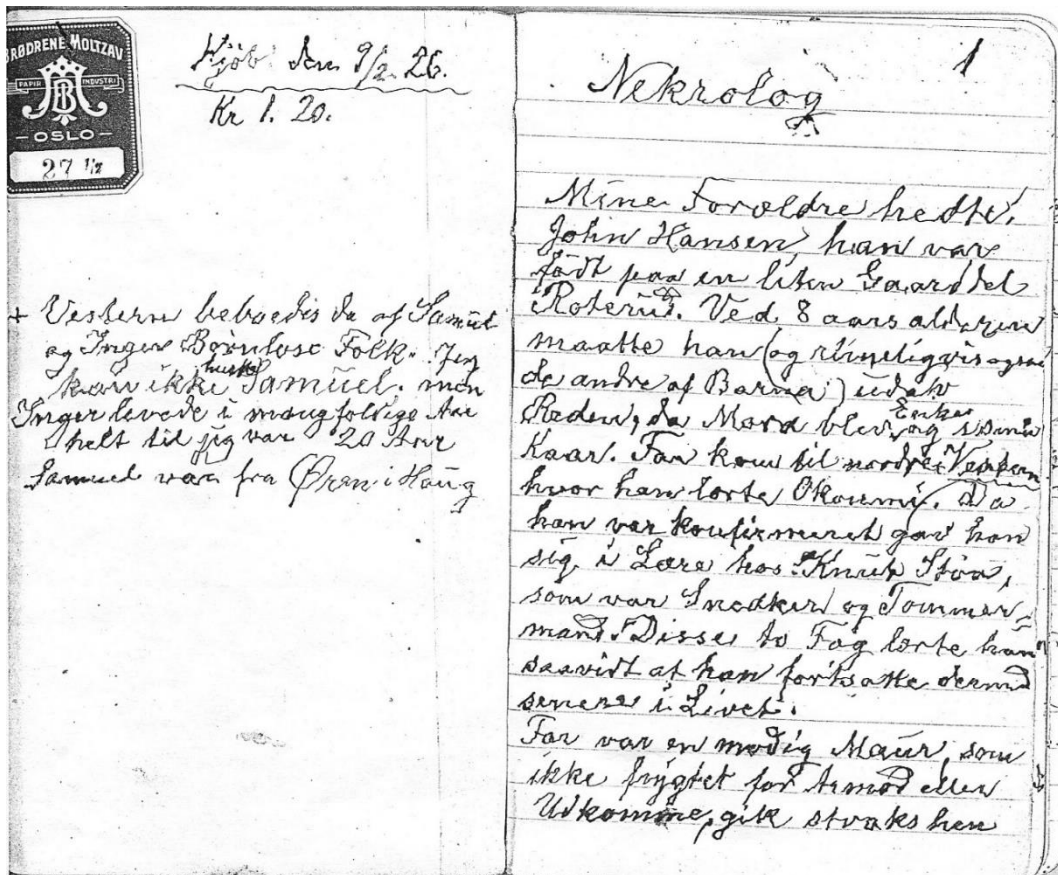 BRØDRENE HOLTZAV
PAPIR INDUSTRI
- OSLO -
27 1/2
Kjöb den 9/2 26.
Kr 1. 20.
+ Vestern beboedes da af Samuel
og Inger Børnløse Folk. Jeg
kan ikke huske Samuel. men
Inger levede i mangfoldige Aar
helt til jeg var 20 Aar
Samuel var fra Øren i Haug
1
Nekrolog
Mine Forældre hedte,
John Hansen, han var
födt paa en liten Gaarddel
Roterud. Ved 8 aars alderen
maatte han (og rimeligvis ogsaa
de andre af Barna) ud af
Reden, da Mora blev Enke og i smaa
Kaar. Far kom til nordre
hvor han lærte Økonomi. Da
han var konfirmeret gav han
sig i Lære hos Knut Stöa,
som var Snedker og Tømmer=
mand. Disse to Fag lærte han
saavidt at han fortsatte dermed
senere i Livet.
Far var en modig Maur, som
ikke frygtet for Armod eller
Udkomme, gik straks hen